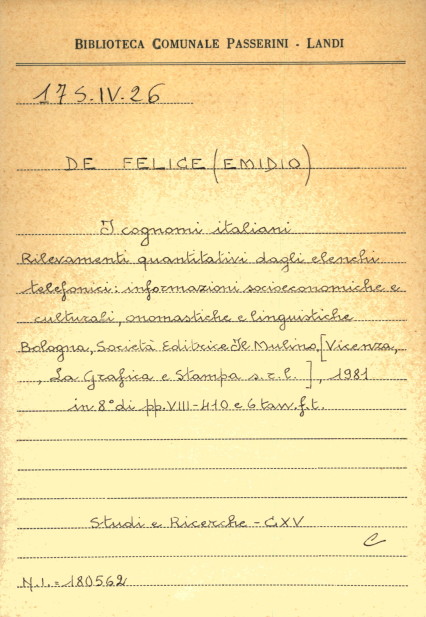 BIBLIOTECA COMUNALE PASSERINI - LANDI
17 S.IV.26
DE FELICE (EMIDIO)
I cognomi italiani
Rilevamenti quantitativi dagli elenchi
telefonici: informazioni socioeconomiche e
culturali, onomastiche e linguistiche
Bologna, Società Editrice Il Mulino, [Vicenza,
, La Grafica e Stampa s.r.l.], 1981
in 8° di pp. VIII-410 e 6 tav. f.t.
Studi e Ricerche - CXV
C
N.I. = 180562